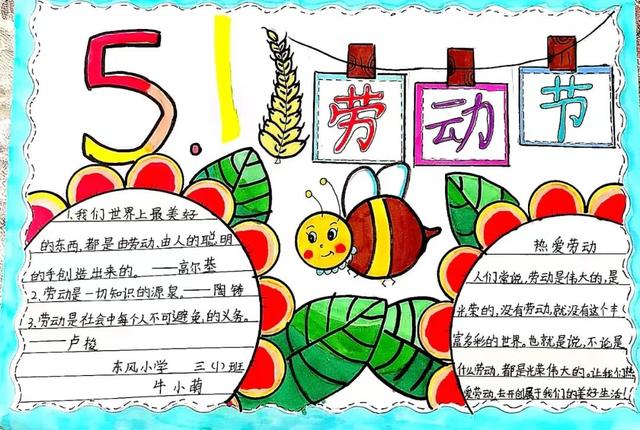 5.1
劳动节
1.我们世界上最美好
的东西,都是由劳动,由人的聪明
的手创造出来的。——高尔基
2.劳动是一切知识的源泉。——陶铸
3.劳动是社会中每个人不可避免的义务。
——卢梭
东风小学 三(1)班
牛小萌
热爱劳动
人们常说,劳动是伟大的,是
光荣的,没有劳动,就没有这个丰
富多彩的世界。也就是说,不论是
什么劳动,都是光荣伟大的。让我们热
爱劳动,去开创属于我们的美好生活!